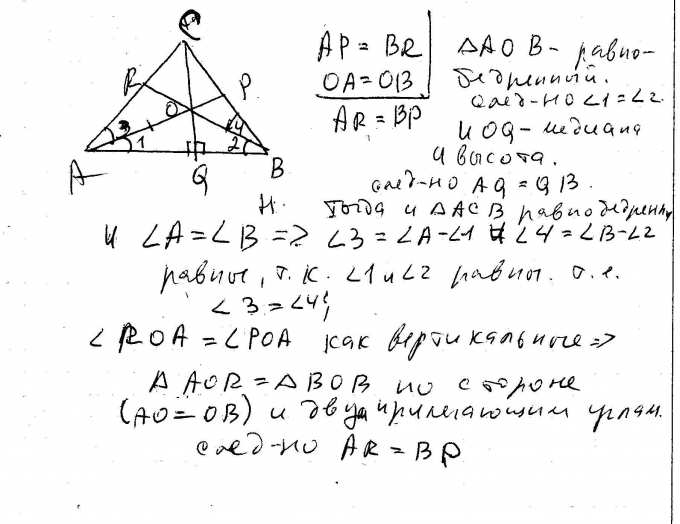 C
R P
O
3 4
1 2
A Q B
H.
AP = BR
OA = OB
AR = BP
△AOB - равно-
бедренный.
след-но ∠1 = ∠2
и OQ - медиана
и высота.
след-но AQ = QB.
тогда и △ACB равнобедренн
и ∠A = ∠B => ∠3 = ∠A-∠1 и ∠4 = ∠B-∠2
равные, т.к. ∠1 и ∠2 равны. т.е.
∠3 = ∠4;
∠ROA = ∠POA как вертикальные =>
△AOR = △BOB по стороне
(AO = OB) и двум прилегающим углам.
след-но AR = BP